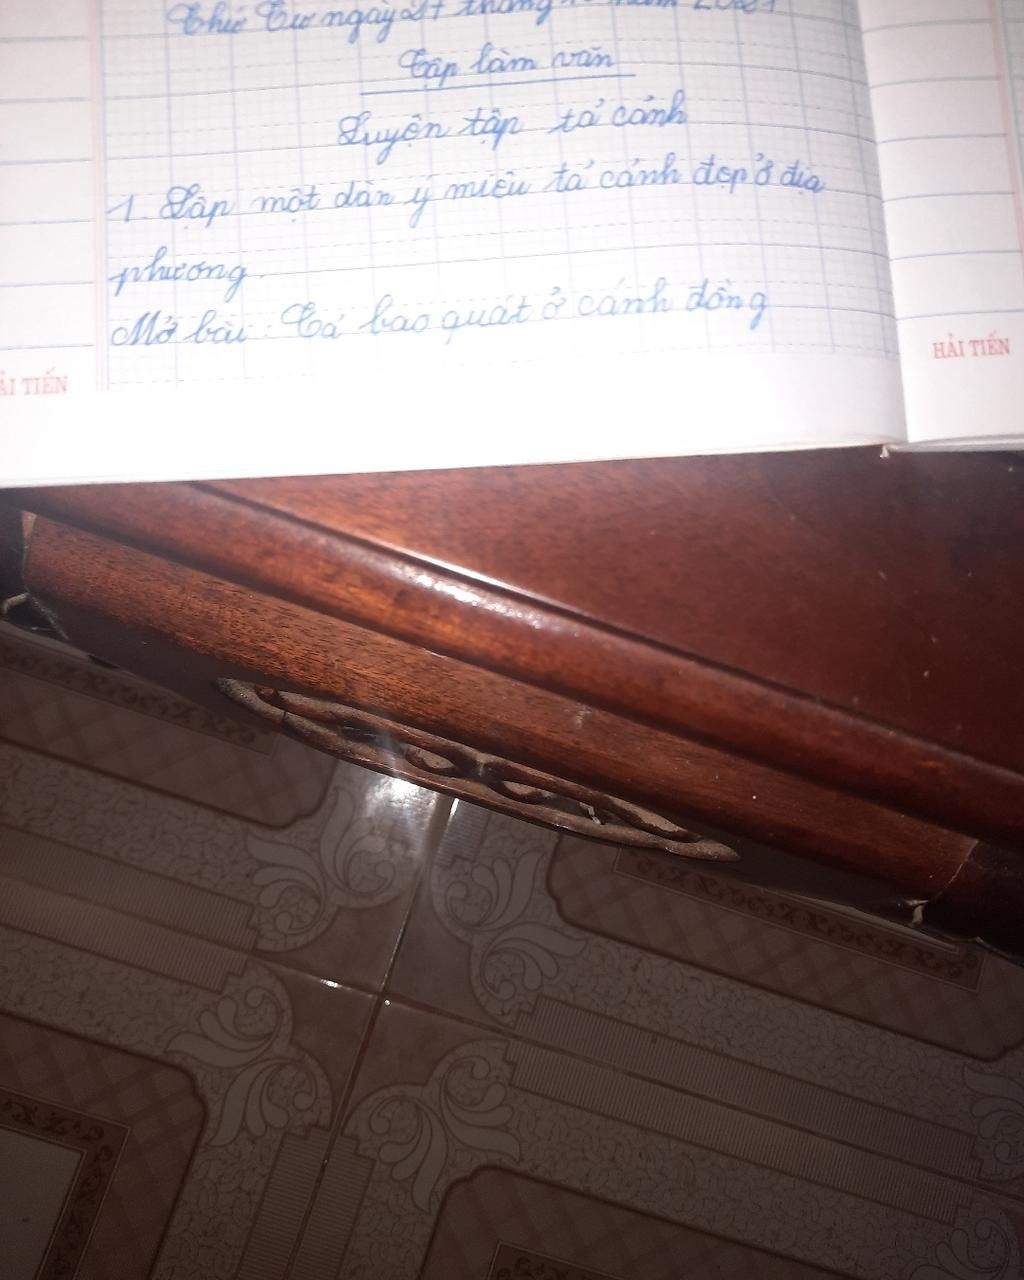 Thứ Tư ngày 27 tháng năm 2021
Tập làm văn
Luyện tập tả cảnh
1. Lập một dàn ý miêu tả cảnh đẹp ở địa
phương.
Mở bài: Tả bao quát ở cánh đồng
HẢI TIẾN
ẢI TIẾN